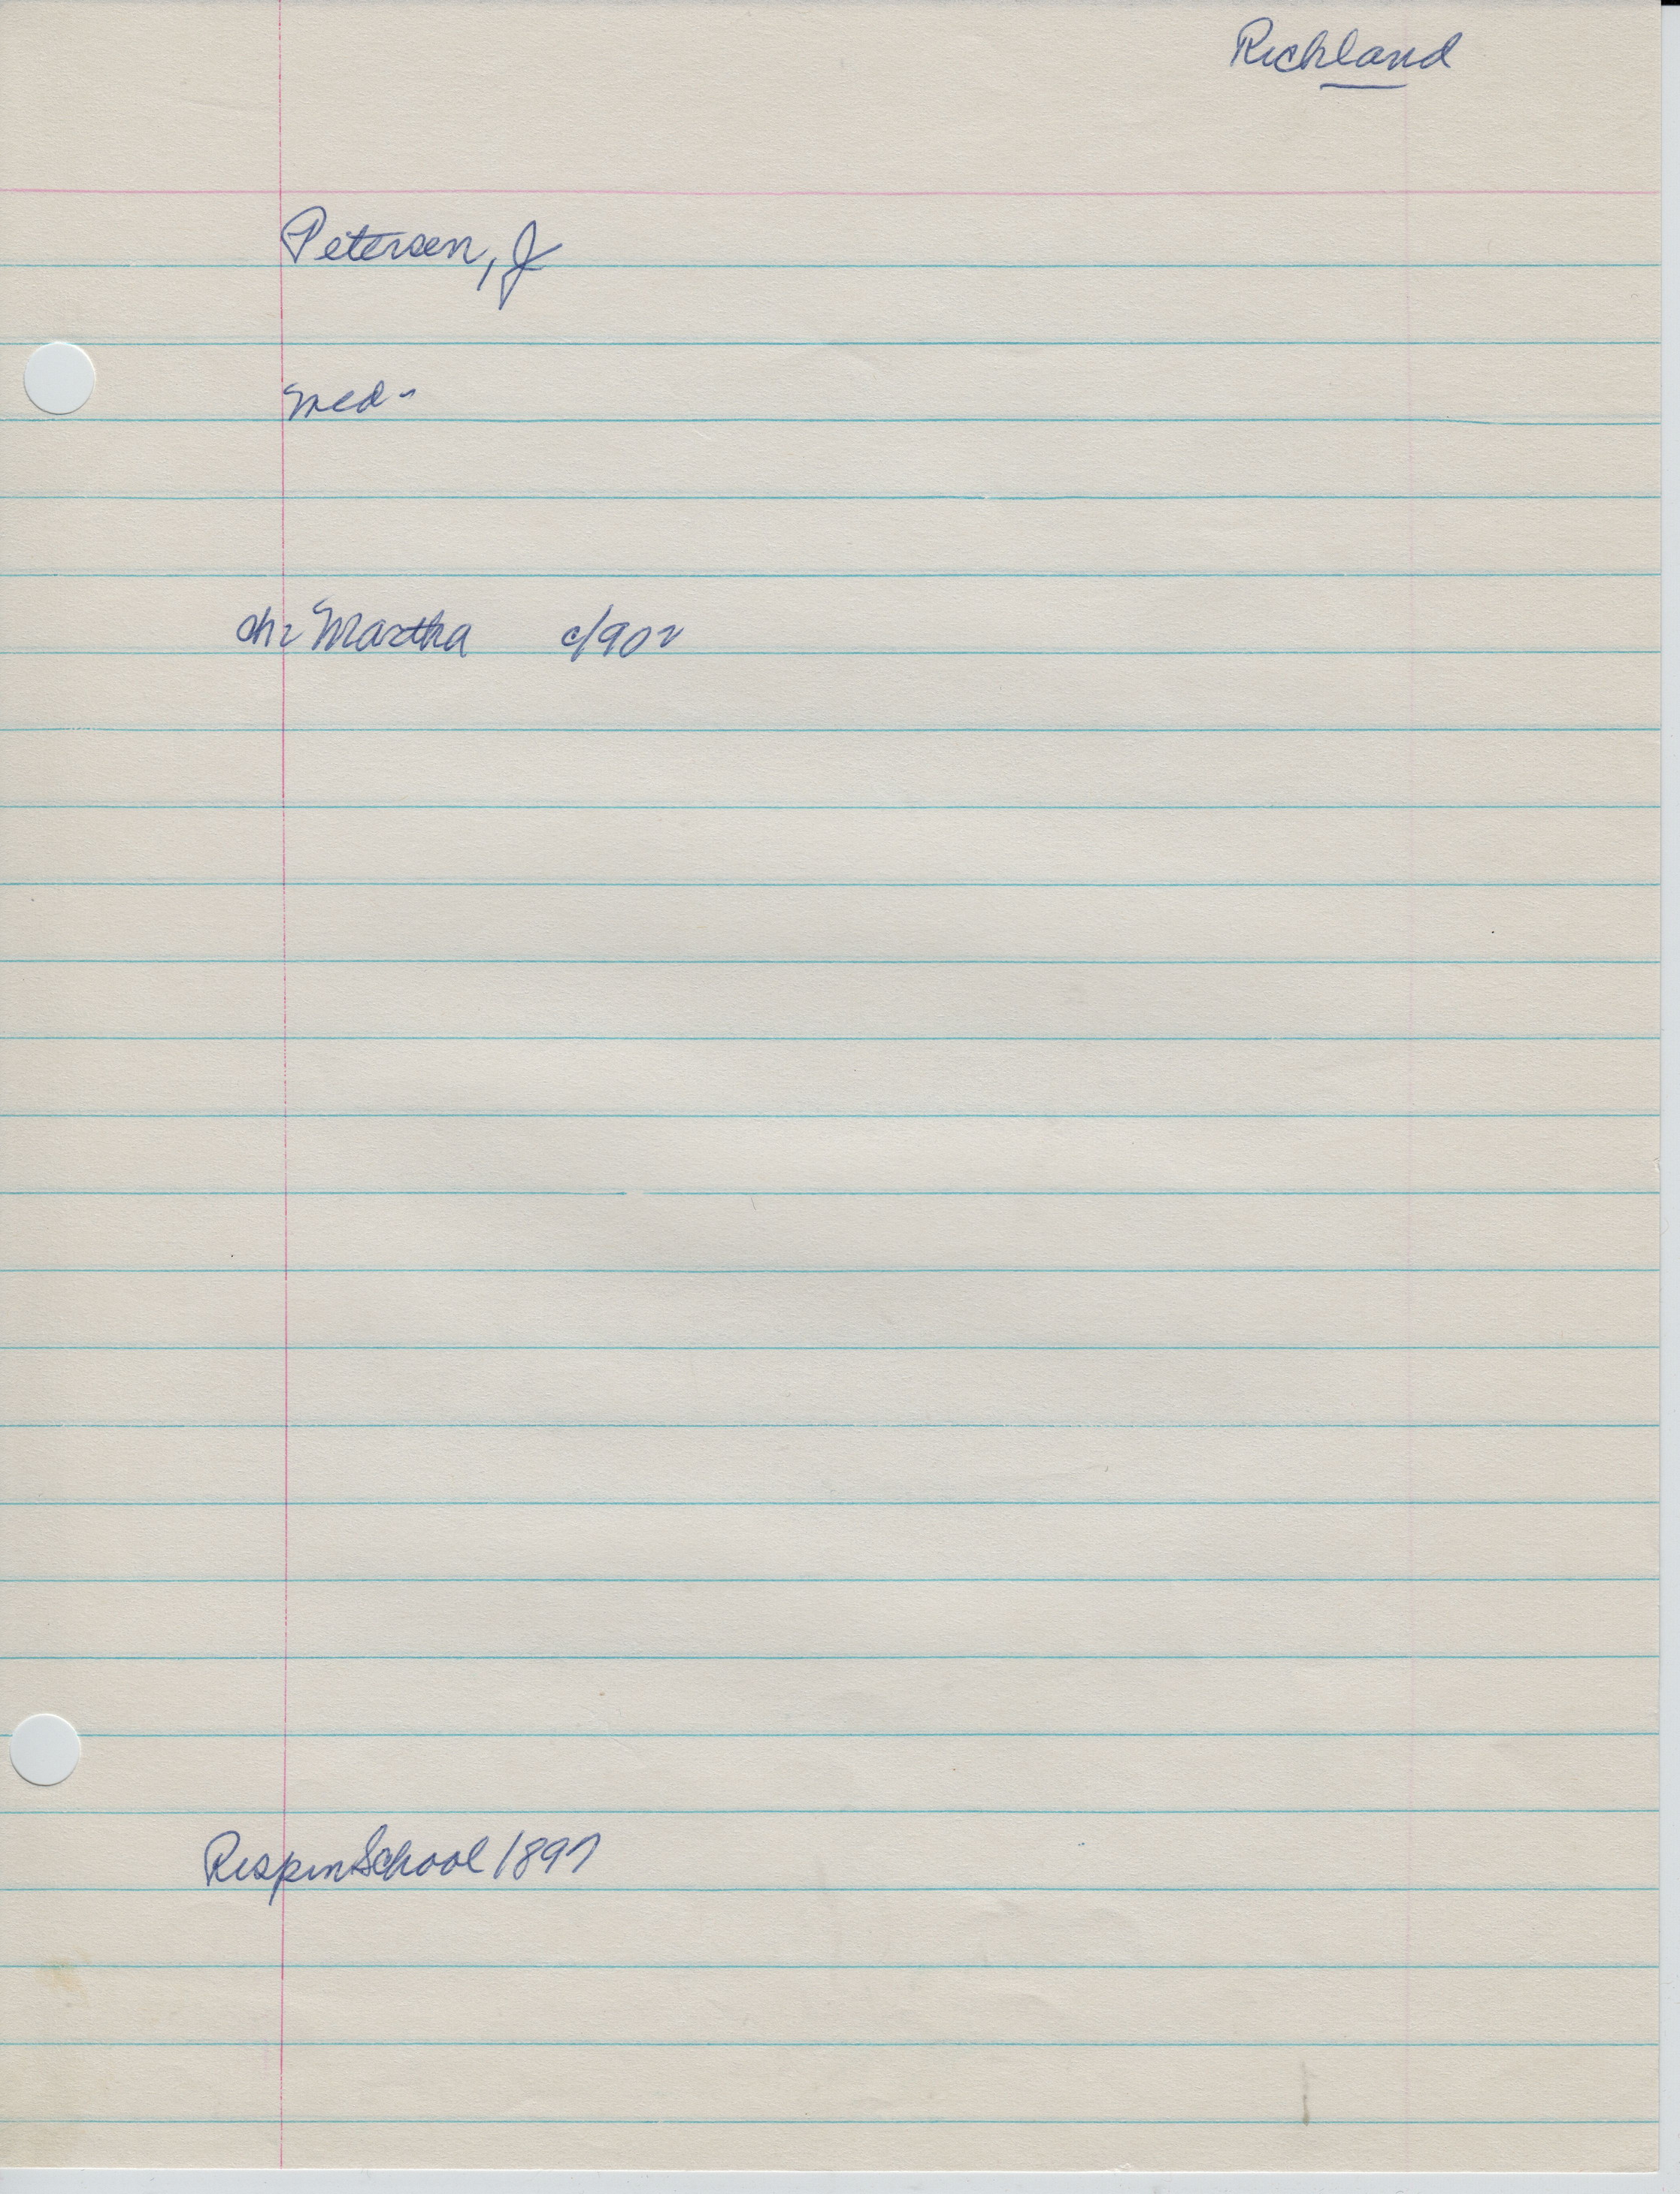 Richland
Petersen, J
Med-
ch: Martha c1902
Rispin School 1897